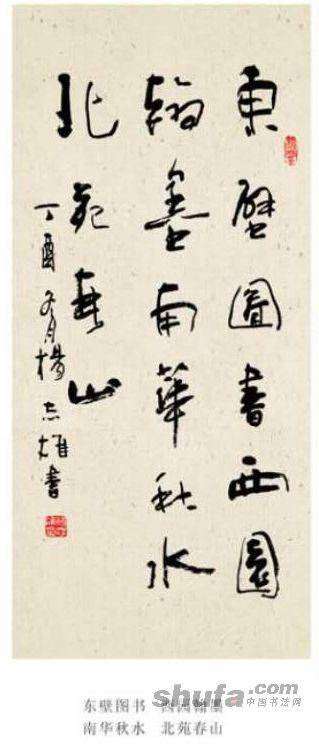 東壁圖書西園
翰墨南華秋水
北苑春山
丁酉冬月楊志雄書
东壁图书 西园翰墨
南华秋水 北苑春山
shufa.com
中国书法网